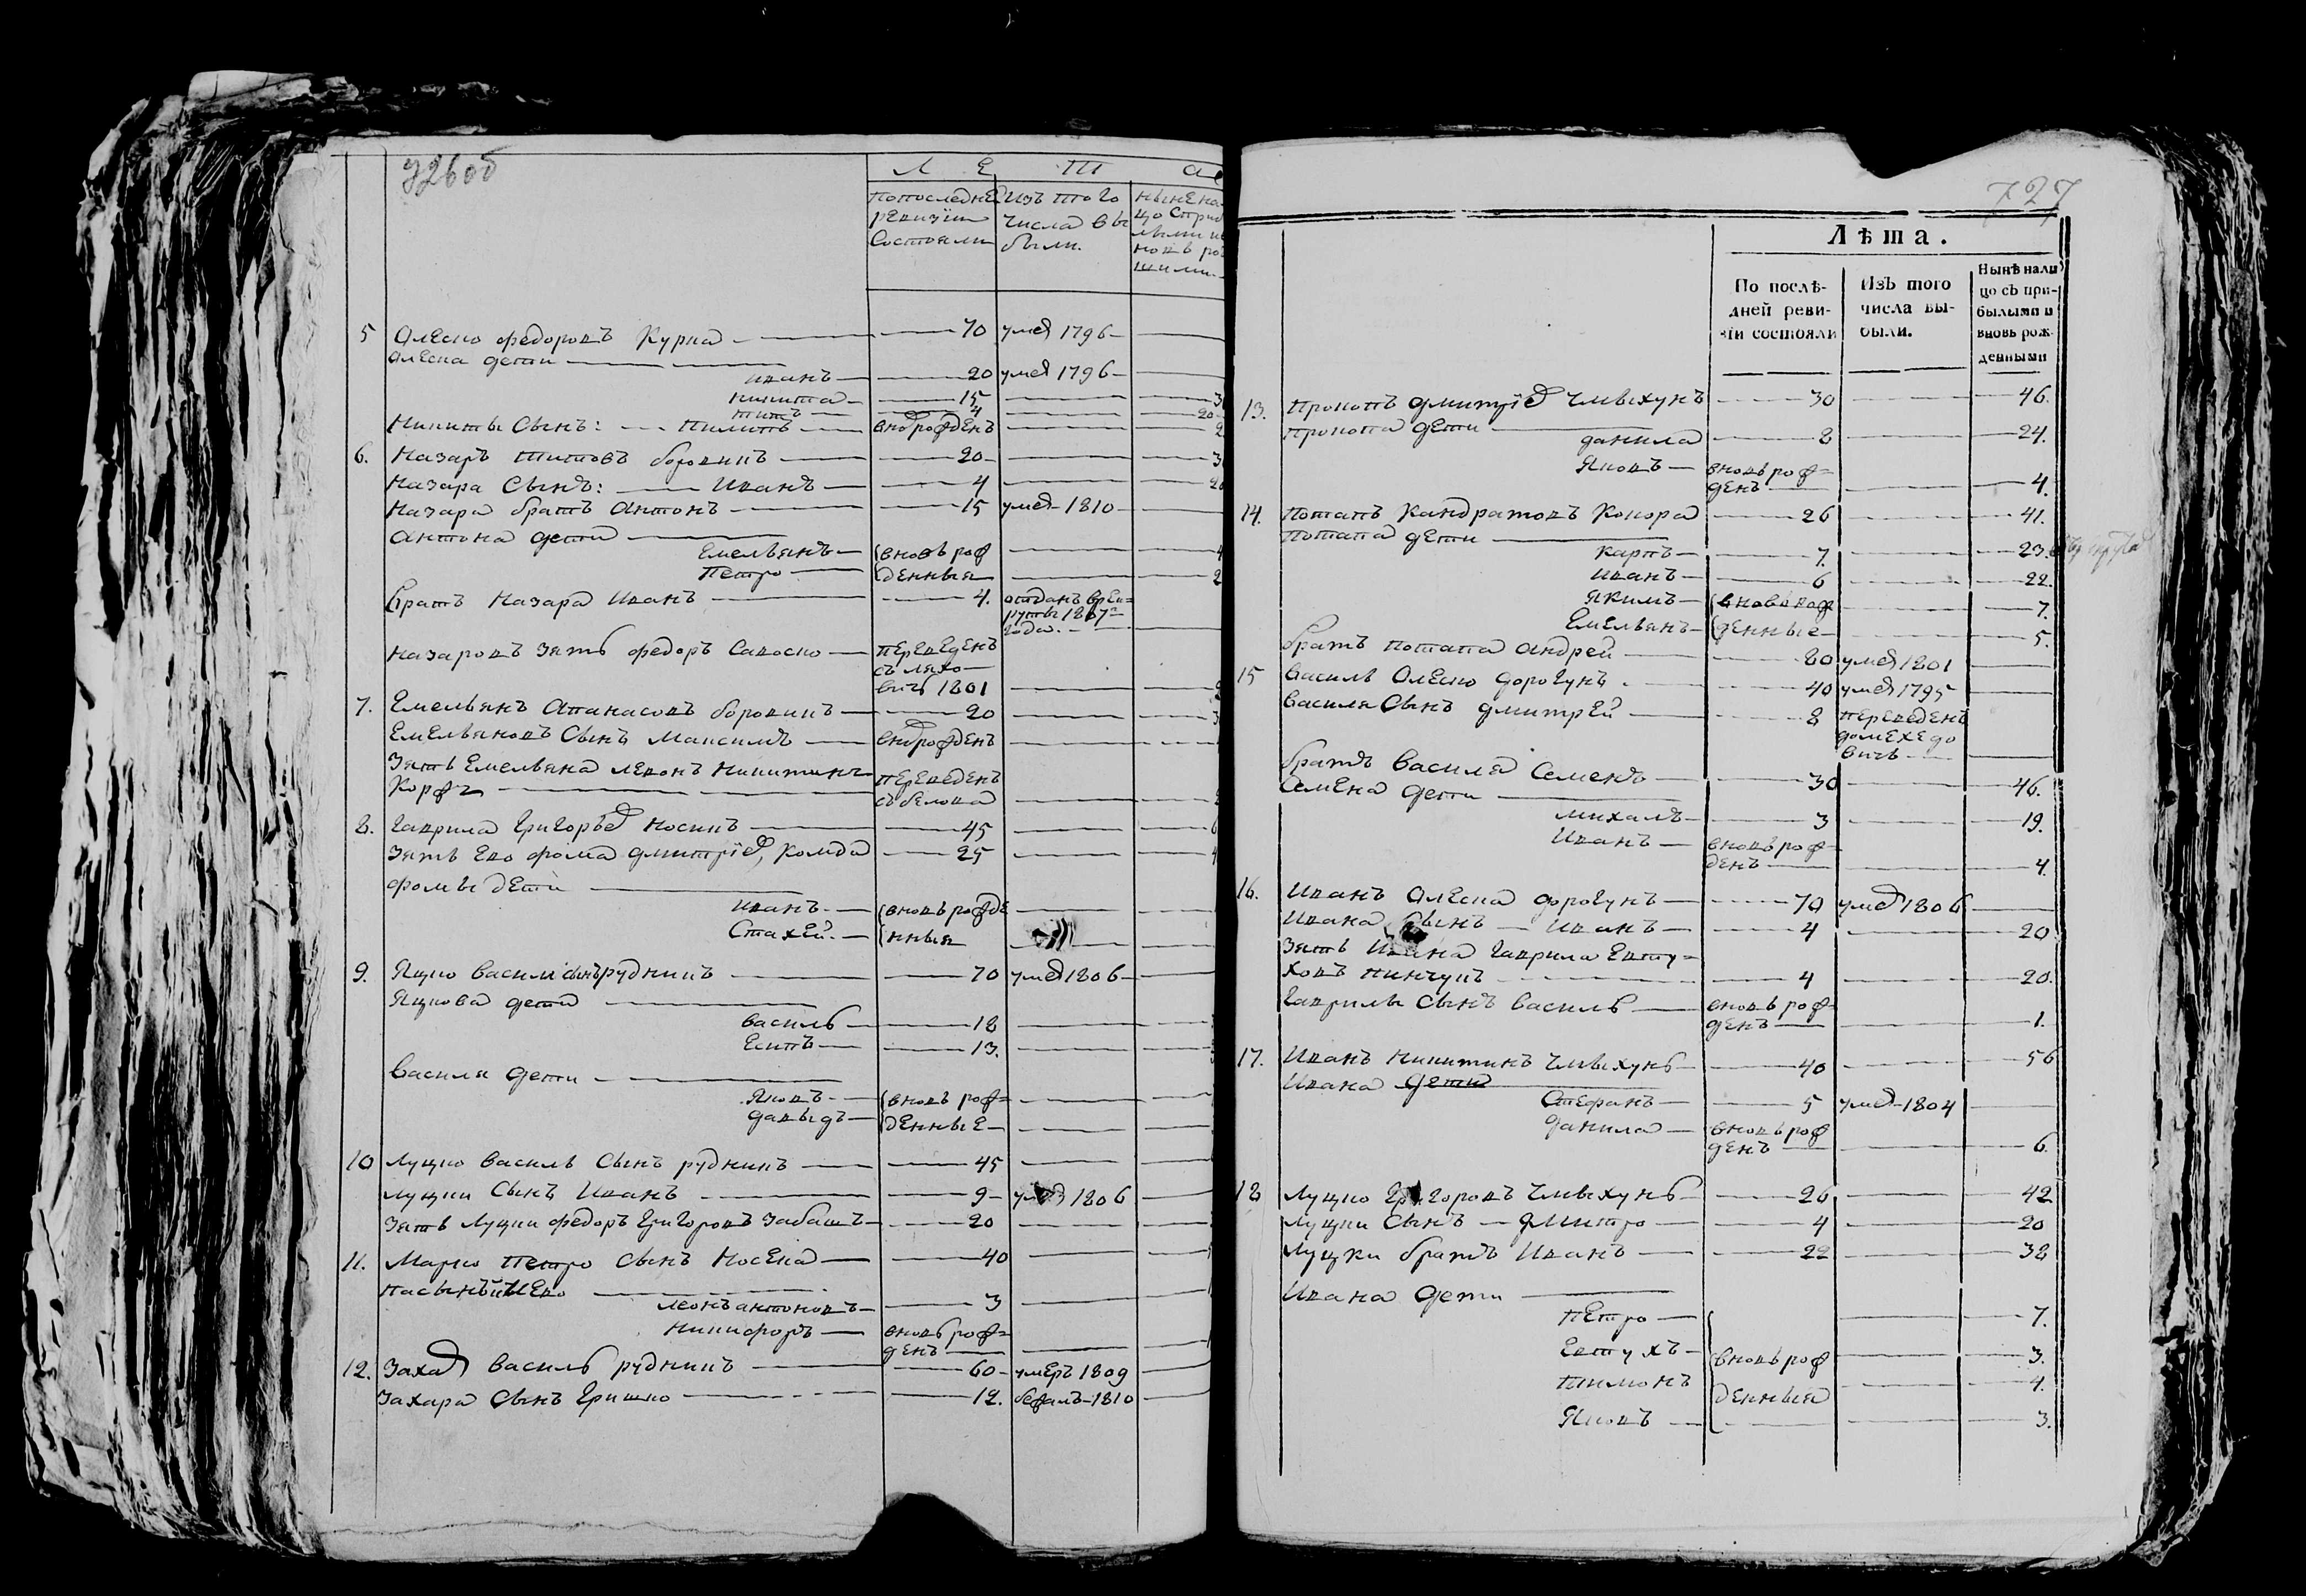 726об
Л Е Т А
По последней Изъ того ныне на
ревизiи числа вы цо с при
состояли были. лыми и
новь ро
шими
5 Олеско федоровъ Курка 70 умер 1796
Олеска дети
Иванъ 20 умер 1796
Никита 15 3
Титъ 4 20
Никиты Сынъ: Пилипъ вноврожденъ 2
6. Назаръ Титовъ боровикъ 20 3
Назара Сынъ: Иванъ 4 20
Назара братъ Антонъ 15 умер 1810
Антона дети
Емельянъ вновь рож 4
Петро денныя 2
Братъ Назара Иванъ 4. отданъ врек=
руты 1807го
года.
Назаровъ Зять федоръ Савоско переведенъ
съ Ляхо
вичъ 1801
7. Емельянъ Апанасовъ боровикъ 20 3
Емельяновъ Сынъ Максимъ вновьрожденъ
Зять Емельяна Левонъ Никитинъ переведенъ
Коржъ
8. Гаврила Григорьев Носикъ 45
Зять Его фома дмитрiев, Комда 25
фомы дети
Иванъ вновьрожде
Стахей. нныя
9. Яцко Васили сынъ рудникъ 70 умер 1806
Яцкова дети
Василь 18
Есипъ 13.
Василя дети
Яковъ вновь рож=
давыдъ денные
10 Луцко Василь Сынъ рудникъ 45
Луцки Сынъ Иванъ 9 умер 1806
Зять Луцки федоръ Григоровъ Забашъ 20
11. Марко Петро Сынъ Носека 40
Пасынки Ево
Леонъ антоновъ 3
Никифоръ вновь рож=
денъ
12. Захар Василь рудникъ 60 умеръ 1809
Захара Сынъ Гришко 12. бежалъ 1810
727
Лѣта.
По послѣ- Изъ того Нынѣ нали
дней реви- числа вы- цо съ при-
зiи состояли были. былыми и
вновь рож-
денными
13. Прокопъ дмитрiев Чмыхунъ 30 46.
Прокопа дети
данила 8 24.
Яковъ вновь рож=
денъ 4.
14. Потапъ Кандратовъ Конора 26 41.
Потапа дети
Карпъ 7. 23.
Иванъ 6 22.
Якимъ вновь рож 7.
Емельянъ денные 5.
братъ Потапа Андрей 20 умер 1801
15 Василь Олеско дорогунъ. 40 умер 1795
Василя Сынъ дмитрей 8 переведенъ
домехедо
вичъ
братъ Василя Семенъ 30 46.
Семена дети
Михалъ 3 19.
Иванъ вновь рож=
денъ 4.
16. Иванъ Олеска дорогунъ 70 умер 1806
Ивана Сынъ Иванъ 4 20
Зять Ивана Гаврила Евту=
ховъ Пинчукъ 4 20.
Гаврилы Сынъ Василь вновь рож=
денъ 1.
17. Иванъ Никитинъ Чмыхунъ 40 56
Ивана дети
Стефанъ 5 умер 1804
данила вновь рож
денъ 6.
18 Луцко Григоровъ Чмыхунъ 26 42
Луцки Сынъ дмитро 4 20
Луцки братъ Иванъ 22 38
Ивана дети
Петро 7.
Евтухъ вновь рож 3.
Пилионъ денныя 4.
Яковъ 3.